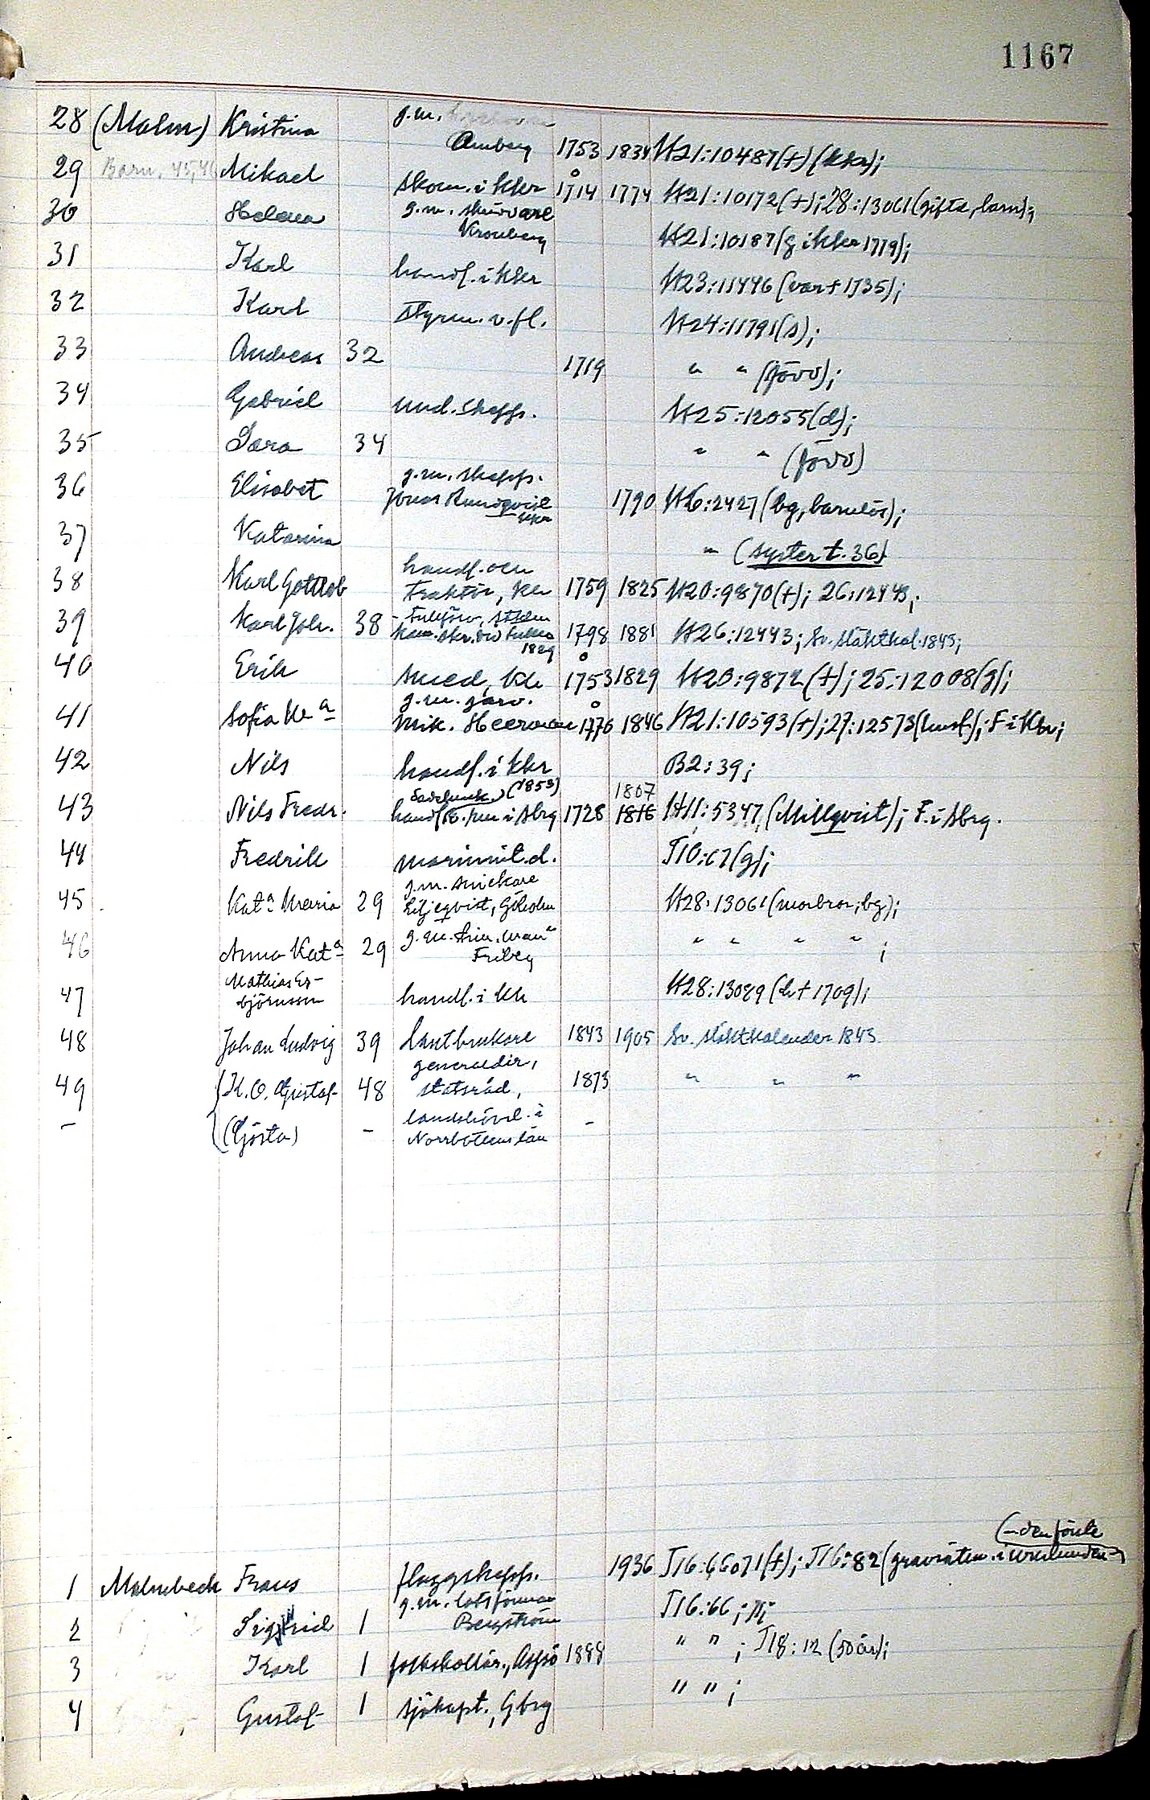 1167
28 (Malm) Kristina g.m.
Amberg 1753 1834 H21:10487(+) (kkr);
29 Barn. 45,46 Mikael skom. i kkr 1714 1774 H21:10172(+); 28:13061(gifte, barn);
30 Helena g.m. skräddare
Kronberg H21:10187(g i kkr 1779);
31 Karl handl. i kkr H23:11446 (var + 1735);
32 Karl styrm. v. fl. H24:11791(s);
33 Andreas 32 1719 " " (före);
34 Gabriel und. skepps. H25:12055(d);
35 Sara 34 " " (före)
36 Elisabet g.m. skepps.
Jonas Rundqvist
kkr 1790 H6:2427 (bg, barnlös);
37 Katarina " (syster t. 36)
38 Karl Gottlob handl. och
traktör, kkr 1759 1825 H20:9870(+); 26:12443;
39 Karl Joh. 38 1829 1798 1881 H26:12443; Sv. släktkal. 1843;
40 Erik smed, kkr 1753 1829 H20:9872(+); 25:12008(g);
41 Sofia M a g.m. garv.
Mik. 1776 1846 H21:10593(+); 27:12573 F i kkr;
42 Nils handl. i kkr B2:39;
43 Nils Fredr. (1853)
handl. i Sbrg 1728 1807
1816 H11:5347, (Millqvist); F. i Sbrg.
44 Fredrik J10:67(g);
45 Kat a Maria 29 g.m. snickare
Liljeqvist, Göholm H28:13061 (morbror, bg);
46 Anna Kat a 29 g.m. tim.man
Friberg " " " " ;
47 Mathias Es-
björnsson handl. i kkr H28:13089 (d. + 1709);
48 Johan Ludvig 39 lantbrukare 1843 1905 Sv. släktkalender 1843.
49 {K. O. Gustaf 48 generaldir,
statsråd, 1873 " " "
- (Gösta) - landshövd. i
Norrbottens län -
(-den förste
1 Malmbeck Frans flaggskepps. 1936 J16:66071(+); J16:82
2 Sigrid 1 g.m. lotsförman
Bergström J16:66;
3 Karl 1 folkskollär., Aspö 1888 " " ; J18:12 (50 år);
4 Gustaf 1 sjökapt., Gbrg " " ;